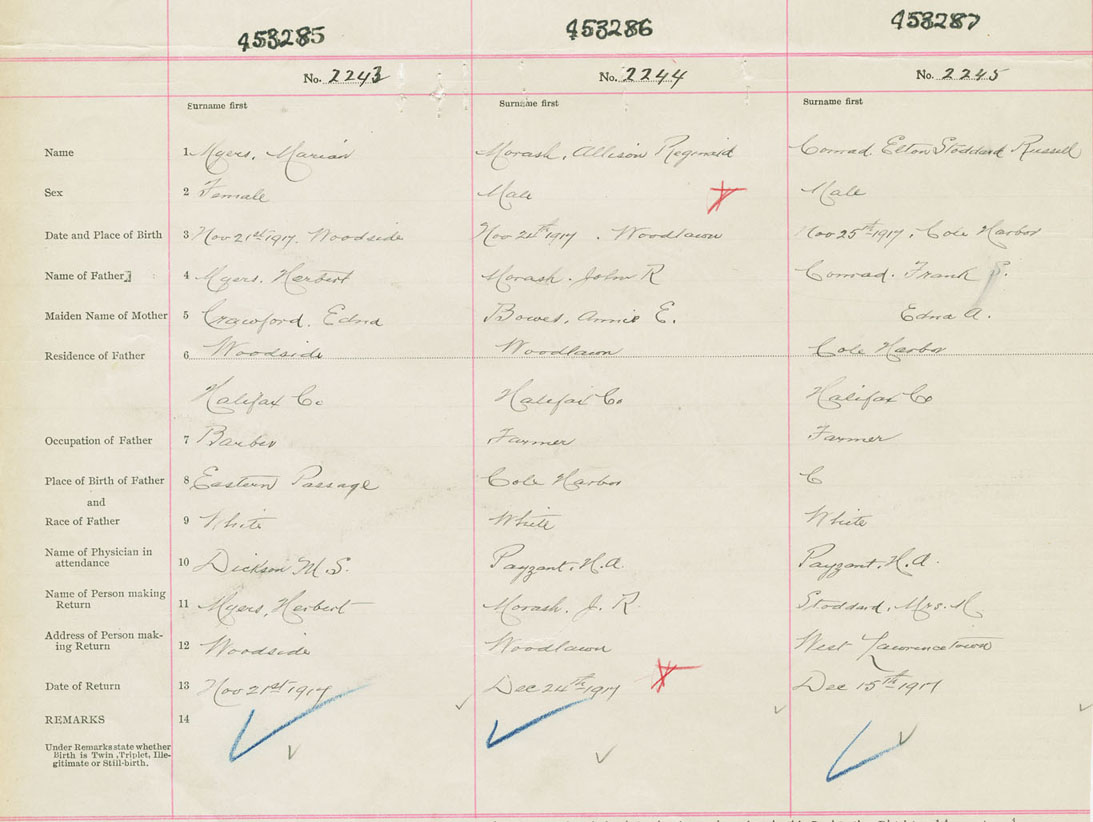 453285 453286 453287
No. 2243 No. 2244 No. 2245
Surname first Surname first Surname first
Name 1 Myers, Marian Morash, Allison Reginald Conrad. Elton Stoddard Russell
Sex 2 Female Male Male
Date and Place of Birth 3 Nov 21st 1917. Woodside Nov 24th 1917 . Woodlawn Nov 25th 1917, Cole Harbor
Name of Father 4 Myers, Herbert Morash. John R Conrad. Frank S.
Maiden Name of Mother 5 Crawford, Edna Bowes, Annie E. Edna A.
Residence of Father 6 Woodside Woodlawn Cole Harbor
Halifax Co Halifax Co Halifax Co
Occupation of Father 7 Barber Farmer Farmer
Place of Birth of Father 8 Eastern Passage Cole Harbor C
and
Race of Father 9 White White White
Name of Physician in
attendance 10 Dickson M. S. Payzant, H. A. Payzant, H. A.
Name of Person making
Return 11 Myers, Herbert Morash, J. R. Stoddard, Mrs. M
Address of Person mak-
ing Return 12 Woodside Woodlawn West Lawrencetown
Date of Return 13 Nov 21st 1917 Dec 24th 1917 Dec 15th 1917
REMARKS 14
Under Remarks state whether
Birth is Twin, Triplet, Ille-
gitimate or Still-birth.